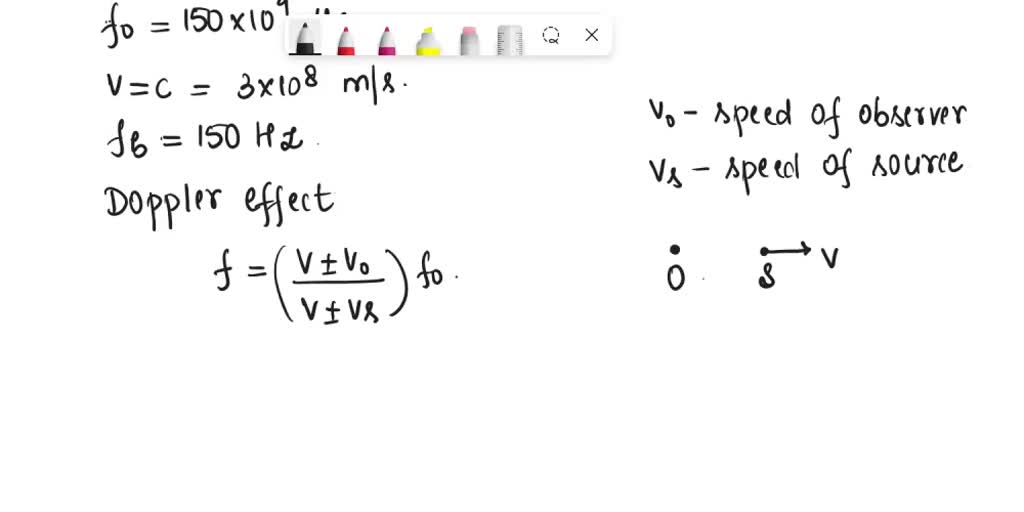 f₀ = 150×10⁹
V=C = 3×10⁸ m/s.
fb = 150 Hz.
Doppler effect
f = (V ± V₀ / V ± Vs) f₀.
V₀ – speed of observer
Vs – speed of source
O S V